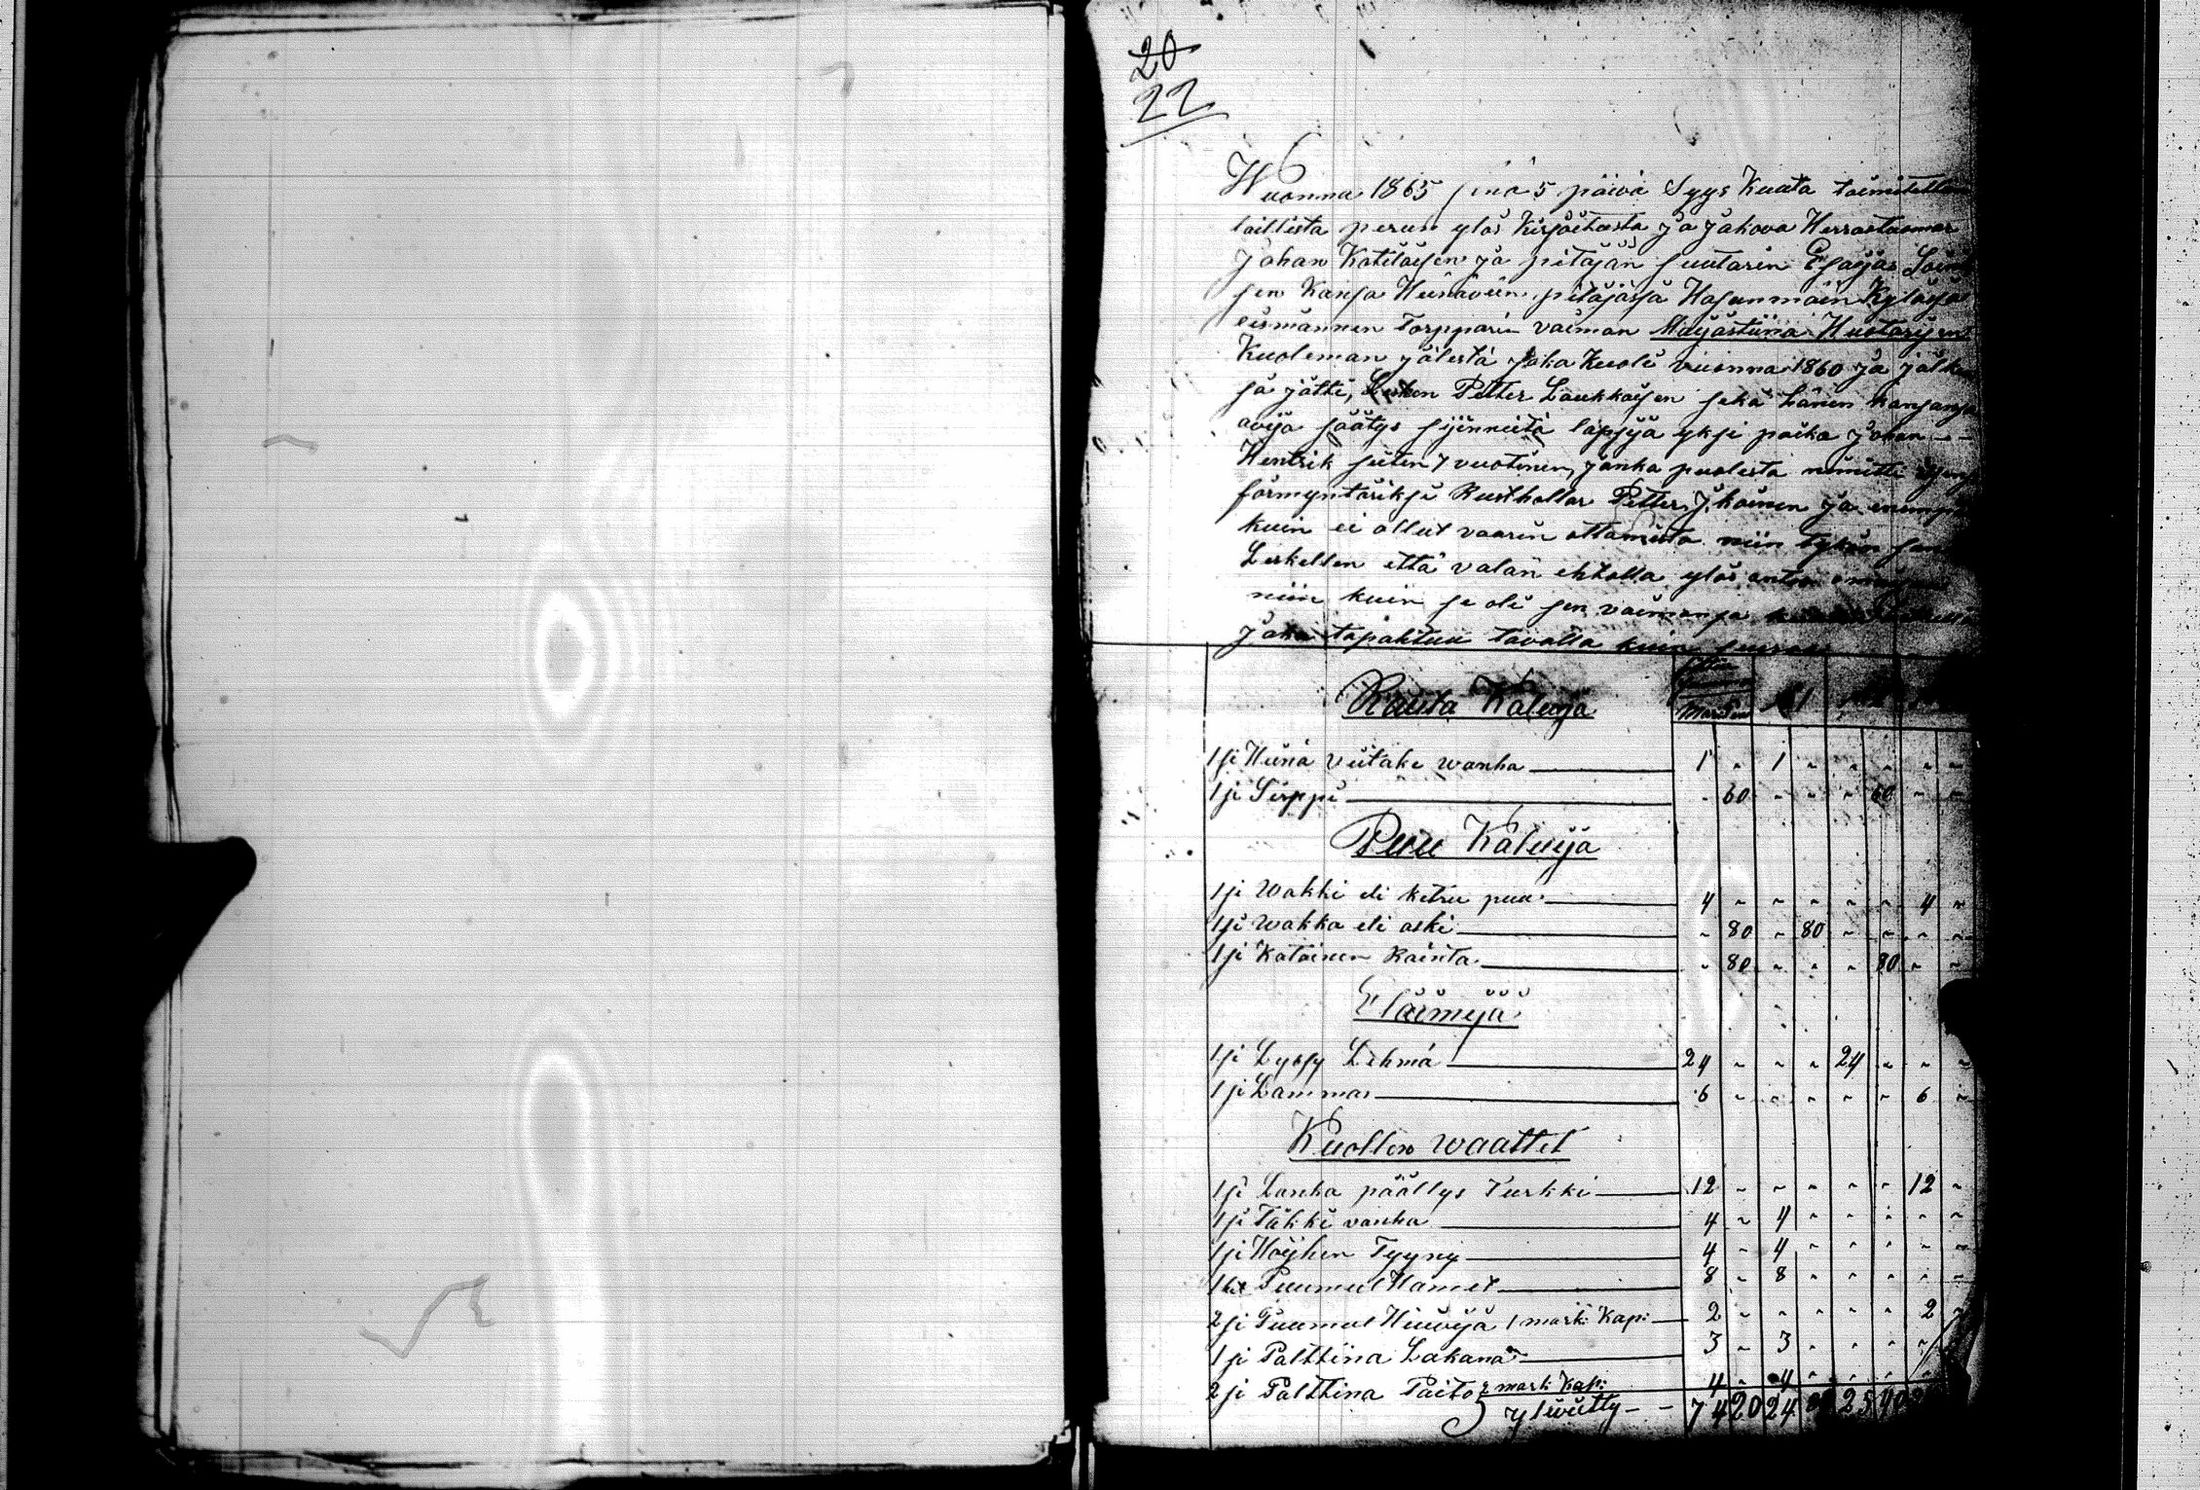 20
22
Wuonna 1865 sinä 5 päivä Syys Kuuta toimitettan
laillista perun ylös kirjoitusta ja jakova Herrastuomar
Johan Kotiloisen ja pitäjän suutarin Esaijas
sen kansa Heinävein pitäjässä Hasunmäin Kyläsä
eismännen Torpparin vaiman Maijastiina Huotarisen
Kuoleman jälestä joka kuoli vuonna 1860 ja jälken
sä jätti, Lesken Petter Laukkaisen sekä Länen kansansa
avio säätys sijnneitä lapsija yksi poika Johan - -
Hentrik seiten 7 vuotinen, jonka puolesta nimitti
förmyntäriksi Rusthollar Petter Ikäinen ja enempi
kuin ei ollut vaarin ottamista niin tykön
Leskellen että valan ehtolla ylös antaa
niin kuin se oli sen vaimonsa
Joka tapahtuu tavalla kuin seuraa
Rauta Kaluja
Mar Pen № 1
1 si Heinä viitake wanha 1 " 1 " " " " "
1 si Sirppi " 60 " " " 60 " "
Puu Kaluja
1 si Wokki eli ketru puu 4 " " " " " 4 "
1 si Wakka eli aski " 80 " 80 " " " "
1 si Katainen Rainta " 80 " " " 80 " "
Eläimijä
1 si Lypsy Lehmä 24 " " " 24 " " "
1 si Lammas 6 " " " " " 6 "
Kuollen waattet
1 si Lanka päällys Turkki 12 " " " " " 12 "
1 si Täkki vanha 4 " 4 " " " " "
1 si Höyhen Tyyny 4 " 4 " " " " "
1 Puumul Hamet 8 " 8 " " " " "
2 si Puumul Hiuvija 1 mark: Kap: 2 " " " " " 2 "
1 si Palttina Lakana 3 " 3 " " " " "
2 si Palttina Paitoa 2 mark Kap: 4 " 4 " " " "
yliviitty - - 74 20 24 80 25 40